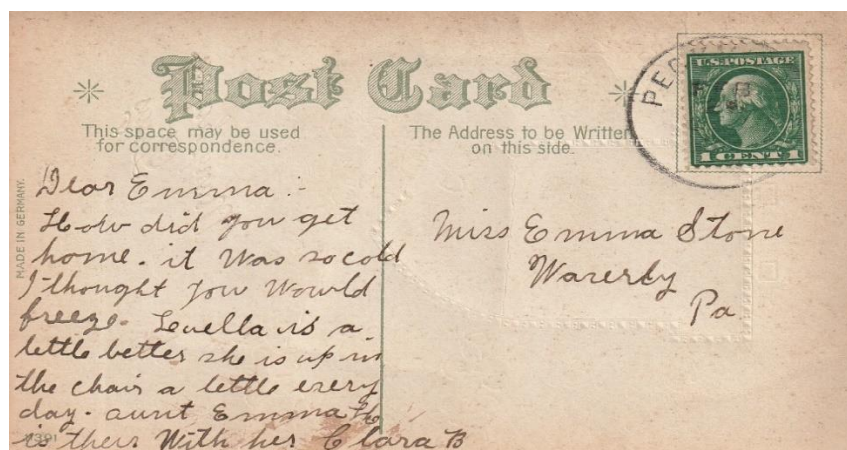 Post Card
This space may be used
for correspondence.
The Address to be Written
on this side.
U.S. POSTAGE
1 CENT 1
PE
MADE IN GERMANY.
Dear Emma :-
How did you get
home. it was so cold
I thought you would
freeze. Louella is a
little better she is up in
the chair a little every
day. aunt Emma
is thers With her Clara B
Miss Emma Stone
Waverly
Pa